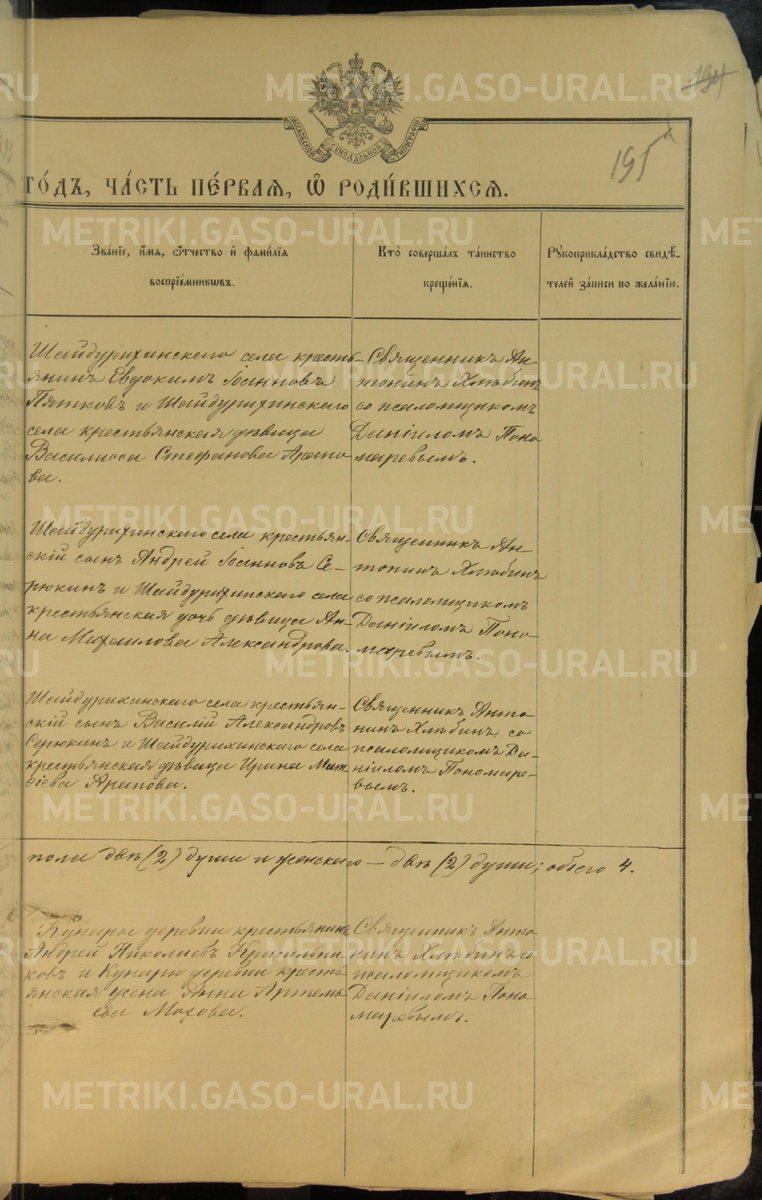 194
195
МОСКОВСКОЙ СѴНОДАЛЬНОЙ ТИПОГРАФІИ
ГО́ДЪ, ЧА́СТЬ ПЕ́РВАЯ, Ѽ РОДИ́ВШИХСЯ.
Зва́нїе, и́мѧ, ѻ́тчество и҆ фами́лїѧ
воспрїе́мникѡвъ.
Кто̀ соверша́лъ та́инство
креще́нїѧ.
Рꙋкоприкла́дство свидѣ́-
телей за́писи по жела́нїю.
Шайдурихинскаго села кресть-
янинъ Евдокимъ Іоанновъ
Пятковъ и Шайдурихинскаго
села крестьянская дѣвица
Василисса Стефанова Арапо-
ва.
Священникъ Ан-
тонинъ Хлѣбинъ
со псаломщикомъ
Даніиломъ Поно-
маревымъ.
Шайдурихинскаго села крестьян-
скій сынъ Андрей Іоанновъ Се-
рюкинъ и Шайдурихинскаго села
крестьянская дочь дѣвица Ан-
на Михаилова Александрова.
Священникъ Ан-
тонинъ Хлѣбинъ
со псаломщикомъ
Даніиломъ Поно-
маревымъ.
Шайдурихинскаго села крестьян-
скій сынъ Василій Александровъ
Серюкинъ и Шайдурихинскаго села
крестьянская дѣвица Ирина Мат-
ѳіева Арапова.
Священникъ Анто-
нинъ Хлѣбинъ со
псаломщикомъ Да-
ніиломъ Пономаре-
вымъ.
пола двѣ (2) души и женскаго — двѣ (2) души; обоего 4.
Кунары деревни крестьянинъ
Андрей Николаевъ Красильни-
ковъ и Кунары деревни кресть-
янская жена Анна Артемь-
ева Мохова.
Священникъ Анто-
нинъ Хлѣбинъ со
псаломщикомъ
Даніиломъ Поно-
маревымъ.
METRIKI.GASO-URAL.RU